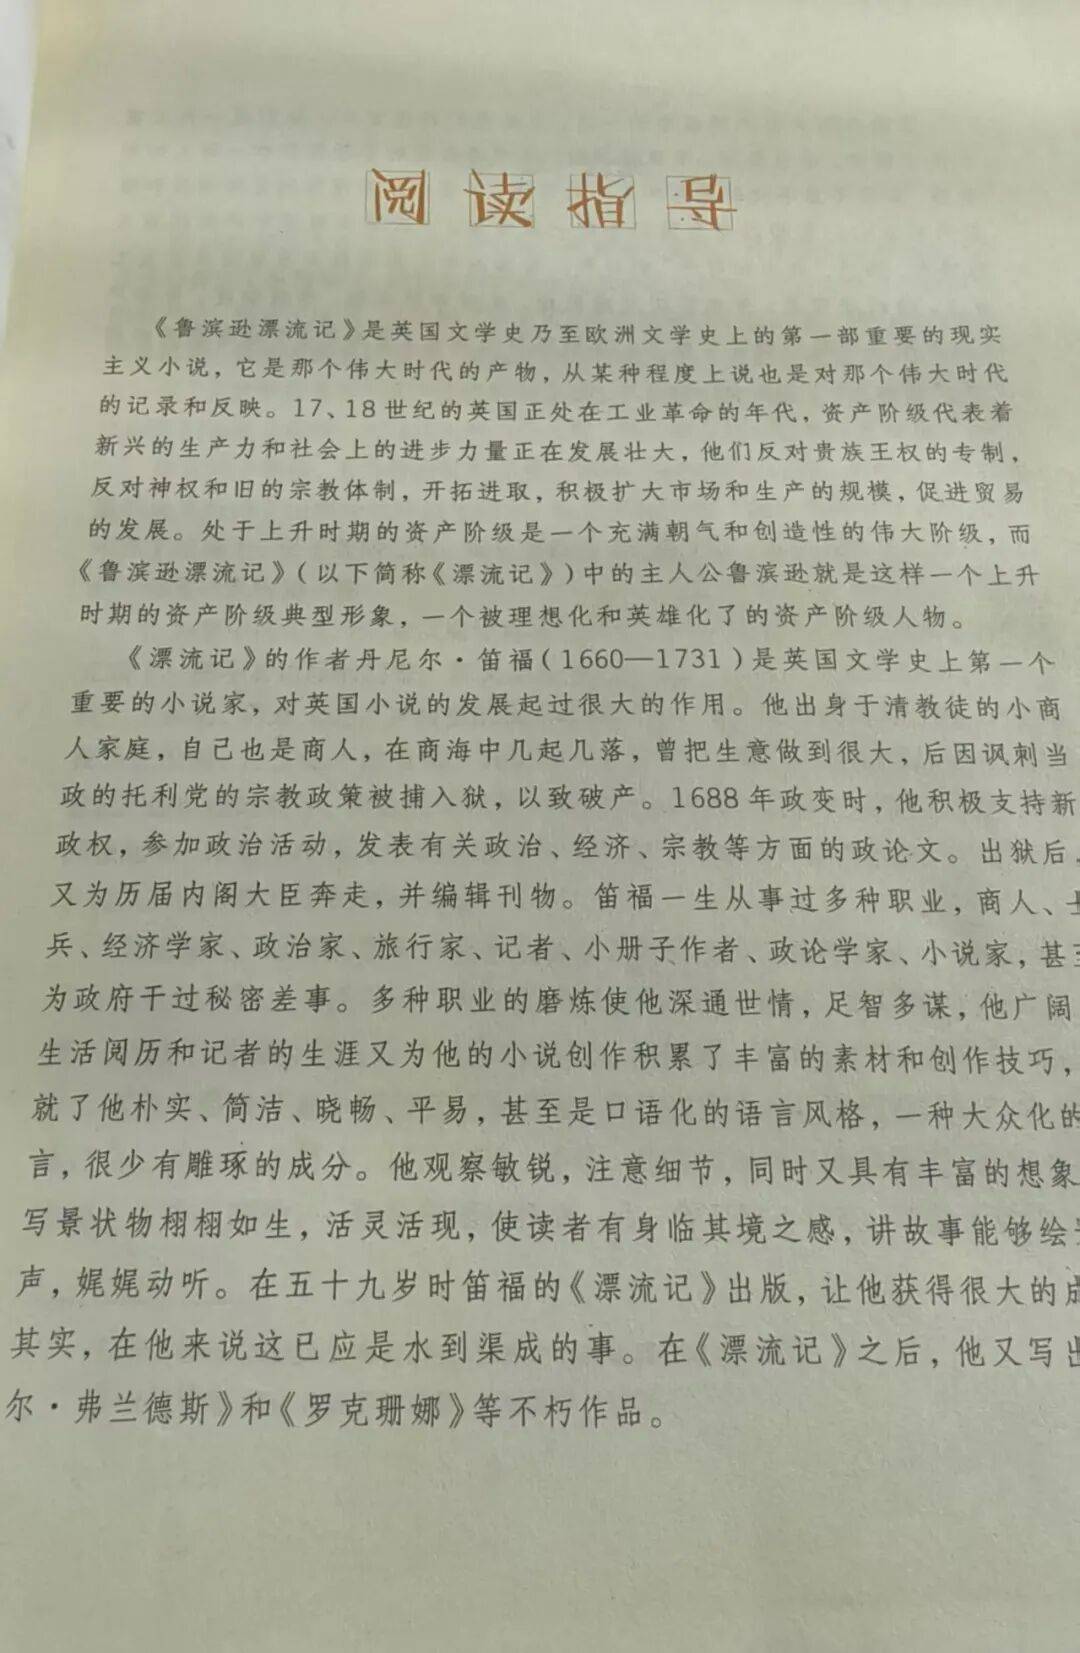 阅读指导
《鲁滨逊漂流记》是英国文学史乃至欧洲文学史上的第一部重要的现实
主义小说，它是那个伟大时代的产物，从某种程度上说也是对那个伟大时代
的记录和反映。17、18世纪的英国正处在工业革命的年代，资产阶级代表着
新兴的生产力和社会上的进步力量正在发展壮大，他们反对贵族王权的专制，
反对神权和旧的宗教体制，开拓进取，积极扩大市场和生产的规模，促进贸易
的发展。处于上升时期的资产阶级是一个充满朝气和创造性的伟大阶级，而
《鲁滨逊漂流记》（以下简称《漂流记》）中的主人公鲁滨逊就是这样一个上升
时期的资产阶级典型形象，一个被理想化和英雄化了的资产阶级人物。
《漂流记》的作者丹尼尔·笛福（1660—1731）是英国文学史上第一个
重要的小说家，对英国小说的发展起过很大的作用。他出身于清教徒的小商
人家庭，自己也是商人，在商海中几起几落，曾把生意做到很大，后因讽刺当
政的托利党的宗教政策被捕入狱，以致破产。1688年政变时，他积极支持新
政权，参加政治活动，发表有关政治、经济、宗教等方面的政论文。出狱后，
又为历届内阁大臣奔走，并编辑刊物。笛福一生从事过多种职业，商人、
兵、经济学家、政治家、旅行家、记者、小册子作者、政论学家、小说家，甚至
为政府干过秘密差事。多种职业的磨炼使他深通世情，足智多谋，他广阔
生活阅历和记者的生涯又为他的小说创作积累了丰富的素材和创作技巧，
就了他朴实、简洁、晓畅、平易，甚至是口语化的语言风格，一种大众化的
言，很少有雕琢的成分。他观察敏锐，注意细节，同时又具有丰富的想象
写景状物栩栩如生，活灵活现，使读者有身临其境之感，讲故事能够绘
声，娓娓动听。在五十九岁时笛福的《漂流记》出版，让他获得很大的
其实，在他来说这已应是水到渠成的事。在《漂流记》之后，他又写出
尔·弗兰德斯》和《罗克珊娜》等不朽作品。